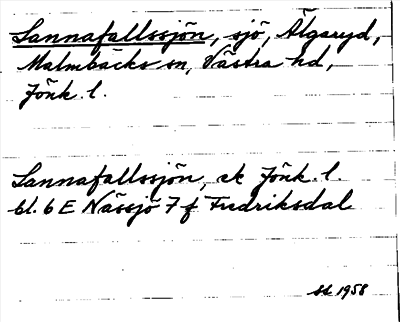 Sannafallssjön, sjö, Älgaryd,
Malmbäcks sn, Västra hd,
Jönk. l.
Sannafallssjön, ek Jönk. l.
bl. 6 E Nässjö 7 f Fredriksdal
1958